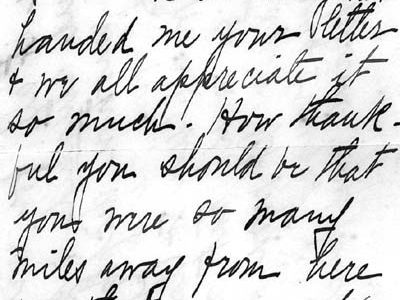 handed me your letter
& we all appreciate it
so much. How thank-
ful you should be that
you were so many
miles away from here